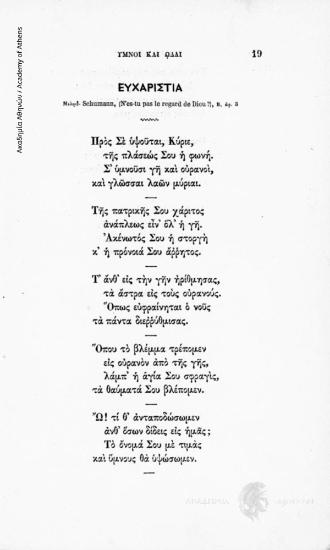 Ακαδημία Αθηνών / Academy of Athens
ΥΜΝΟΙ ΚΑΙ ΩΔΑΙ 19
ΕΥΧΑΡΙΣΤΙΑ
Μελῳδ. Schumann, (N'es-tu pas le regard de Dieu?), Β. ἀρ. 3
Πρὸς Σὲ ὑψοῦται, Κύριε,
τῆς πλάσεώς Σου ἡ φωνή.
Σ' ὑμνοῦσι γῆ καὶ οὐρανοί,
καὶ γλῶσσαι λαῶν μύριαι.
Τῆς πατρικῆς Σου χάριτος
ἀνάπλεως εἶν' ὅλ' ἡ γῆ.
Ἀκένωτός Σου ἡ στοργὴ
κ' ἡ πρόνοιά Σου ἄῤῥητος.
Τ' ἄνθ' εἰς τὴν γῆν ἠρίθμησας,
τὰ ἄστρα εἰς τοὺς οὐρανούς.
Ὅπως εὐφραίνηται ὁ νοῦς
τὰ πάντα διεῤῥύθμισας.
Ὅπου τὸ βλέμμα τρέπομεν
εἰς οὐρανὸν ἀπὸ τῆς γῆς,
λάμπ' ἡ ἁγία Σου σφραγίς,
τὰ θαύματά Σου βλέπομεν.
Ὤ! τί θ' ἀνταποδώσωμεν
ἀνθ' ὅσων δίδεις εἰς ἡμᾶς;
Τὸ ὄνομά Σου μὲ τιμὰς
καὶ ὕμνους θὰ ὑψώσωμεν.
ΑΚΑΔΗΜΙΑ ΑΘΗΝΩΝ